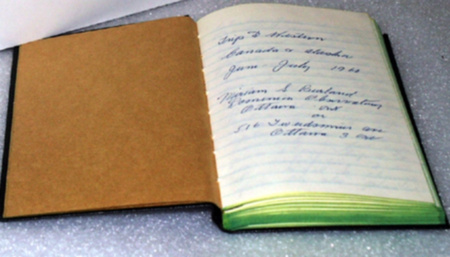 Trip to Western
Canada & Alaska
June - July 19
Miriam S Burland
Dominion Observatory
Ottawa Ont
or
Ave
Ottawa 3 Ont